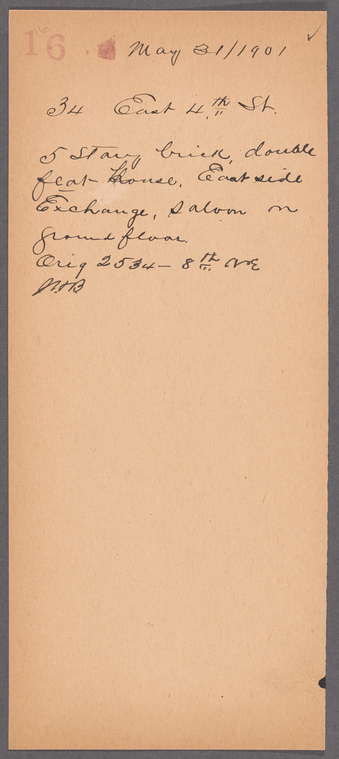 16 May 31/1901
34 East 4th St.
5 Story brick, double
flat house. East side
Exchange, saloon on
ground floor.
Orig 2534 - 8th Ave